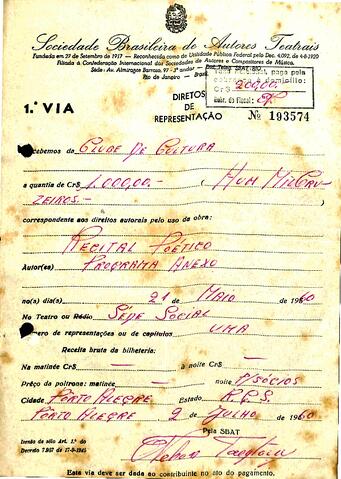 Sociedade Brasileira de Autores Teatrais
Fundada em 27 de Setembro de 1917 — Reconhecida como de Utilidade Pública Federal pelo Dec. 4.092, de 4-8-1920
Filiada à Confederação Internacional das Sociedades de Autores e Compositores de Música.
Séde: Av. Almirante Barroso, 97 - 3º andar — End. Teleg. SBAT - RIO
Rio de Janeiro — Brasil
paga pela
cobrança à domicilio:
Cr$ 200,00
Rubr. do Fiscal:
1.ª VIA
DIREITOS
DE
REPRESENTAÇÃO
Nº 193574
Recebemos da CLUBE DE CULTURA
a quantia de Cr$ 1.000,00.- ( HUM MIL CRU-
ZEIROS.-
correspondente aos direitos autorais pelo uso da obra:
RECITAL POÉTICO
Autor(es) PROGRAMA ANEXO
no(s) dia(s) 21 - MAIO - 1960
No Teatro ou Rádio SÉDE SOCIAL
Número de representações ou de capítulos UMA
Receita bruta da bilheteria:
Na matinée Cr$ — à noite Cr$ —
Preço da poltrona: matinée — noite P/SÓCIOS
Cidade PÔRTO ALEGRE Estado R.G.S.
PÔRTO ALEGRE 2 de JULHO de 1960
Pela SBAT
Isento de sêlo Art. 1.º do
Decreto 7.957 de 17-9-1945
Esta via deve ser dada ao contribuinte no ato do pagamento.